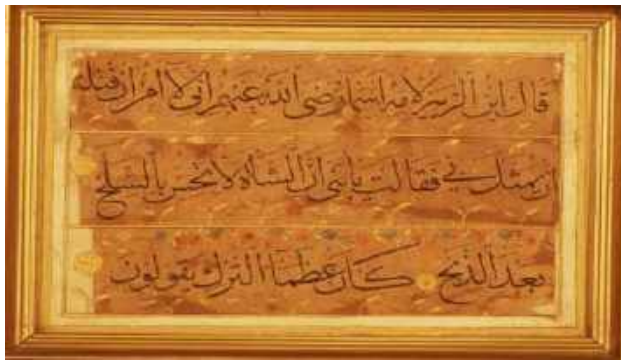 قال ابن الزبير لامه اسما رضى الله عنهم انى لا آمن ان قتلت
ان يمثل بى فقالت يا بنى ان الشاة لا تحس بالسلخ
بعد الذبح كان عظما الترك يقولون